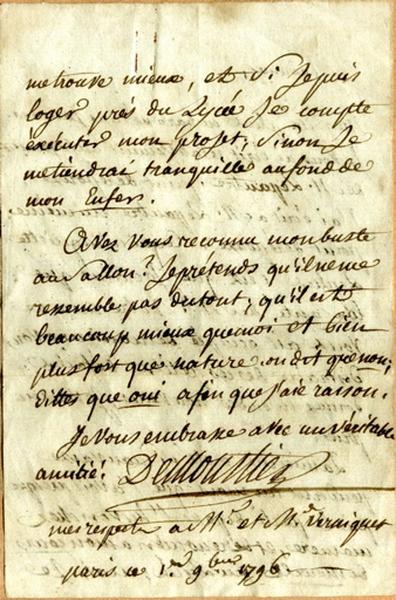 me trouve mieux, et si je puis
loger près du Lycée je compte
éxécuter mon projet, sinon je
me tiendrai tranquille au fond de
mon Enfer.
Avez vous reconnu mon buste
au Sallon? Je prétends qu'il ne me
ressemble pas du tout; qu'il est
beaucoup mieux que moi et bien
plus fort que nature. on dit que non;
dittes que oui afin que j'aie raison.
Je vous embrasse avec une véritable
amitié! Demoustier
mes respects à Mr. et Me.
paris ce 1er. 9bre 1796.